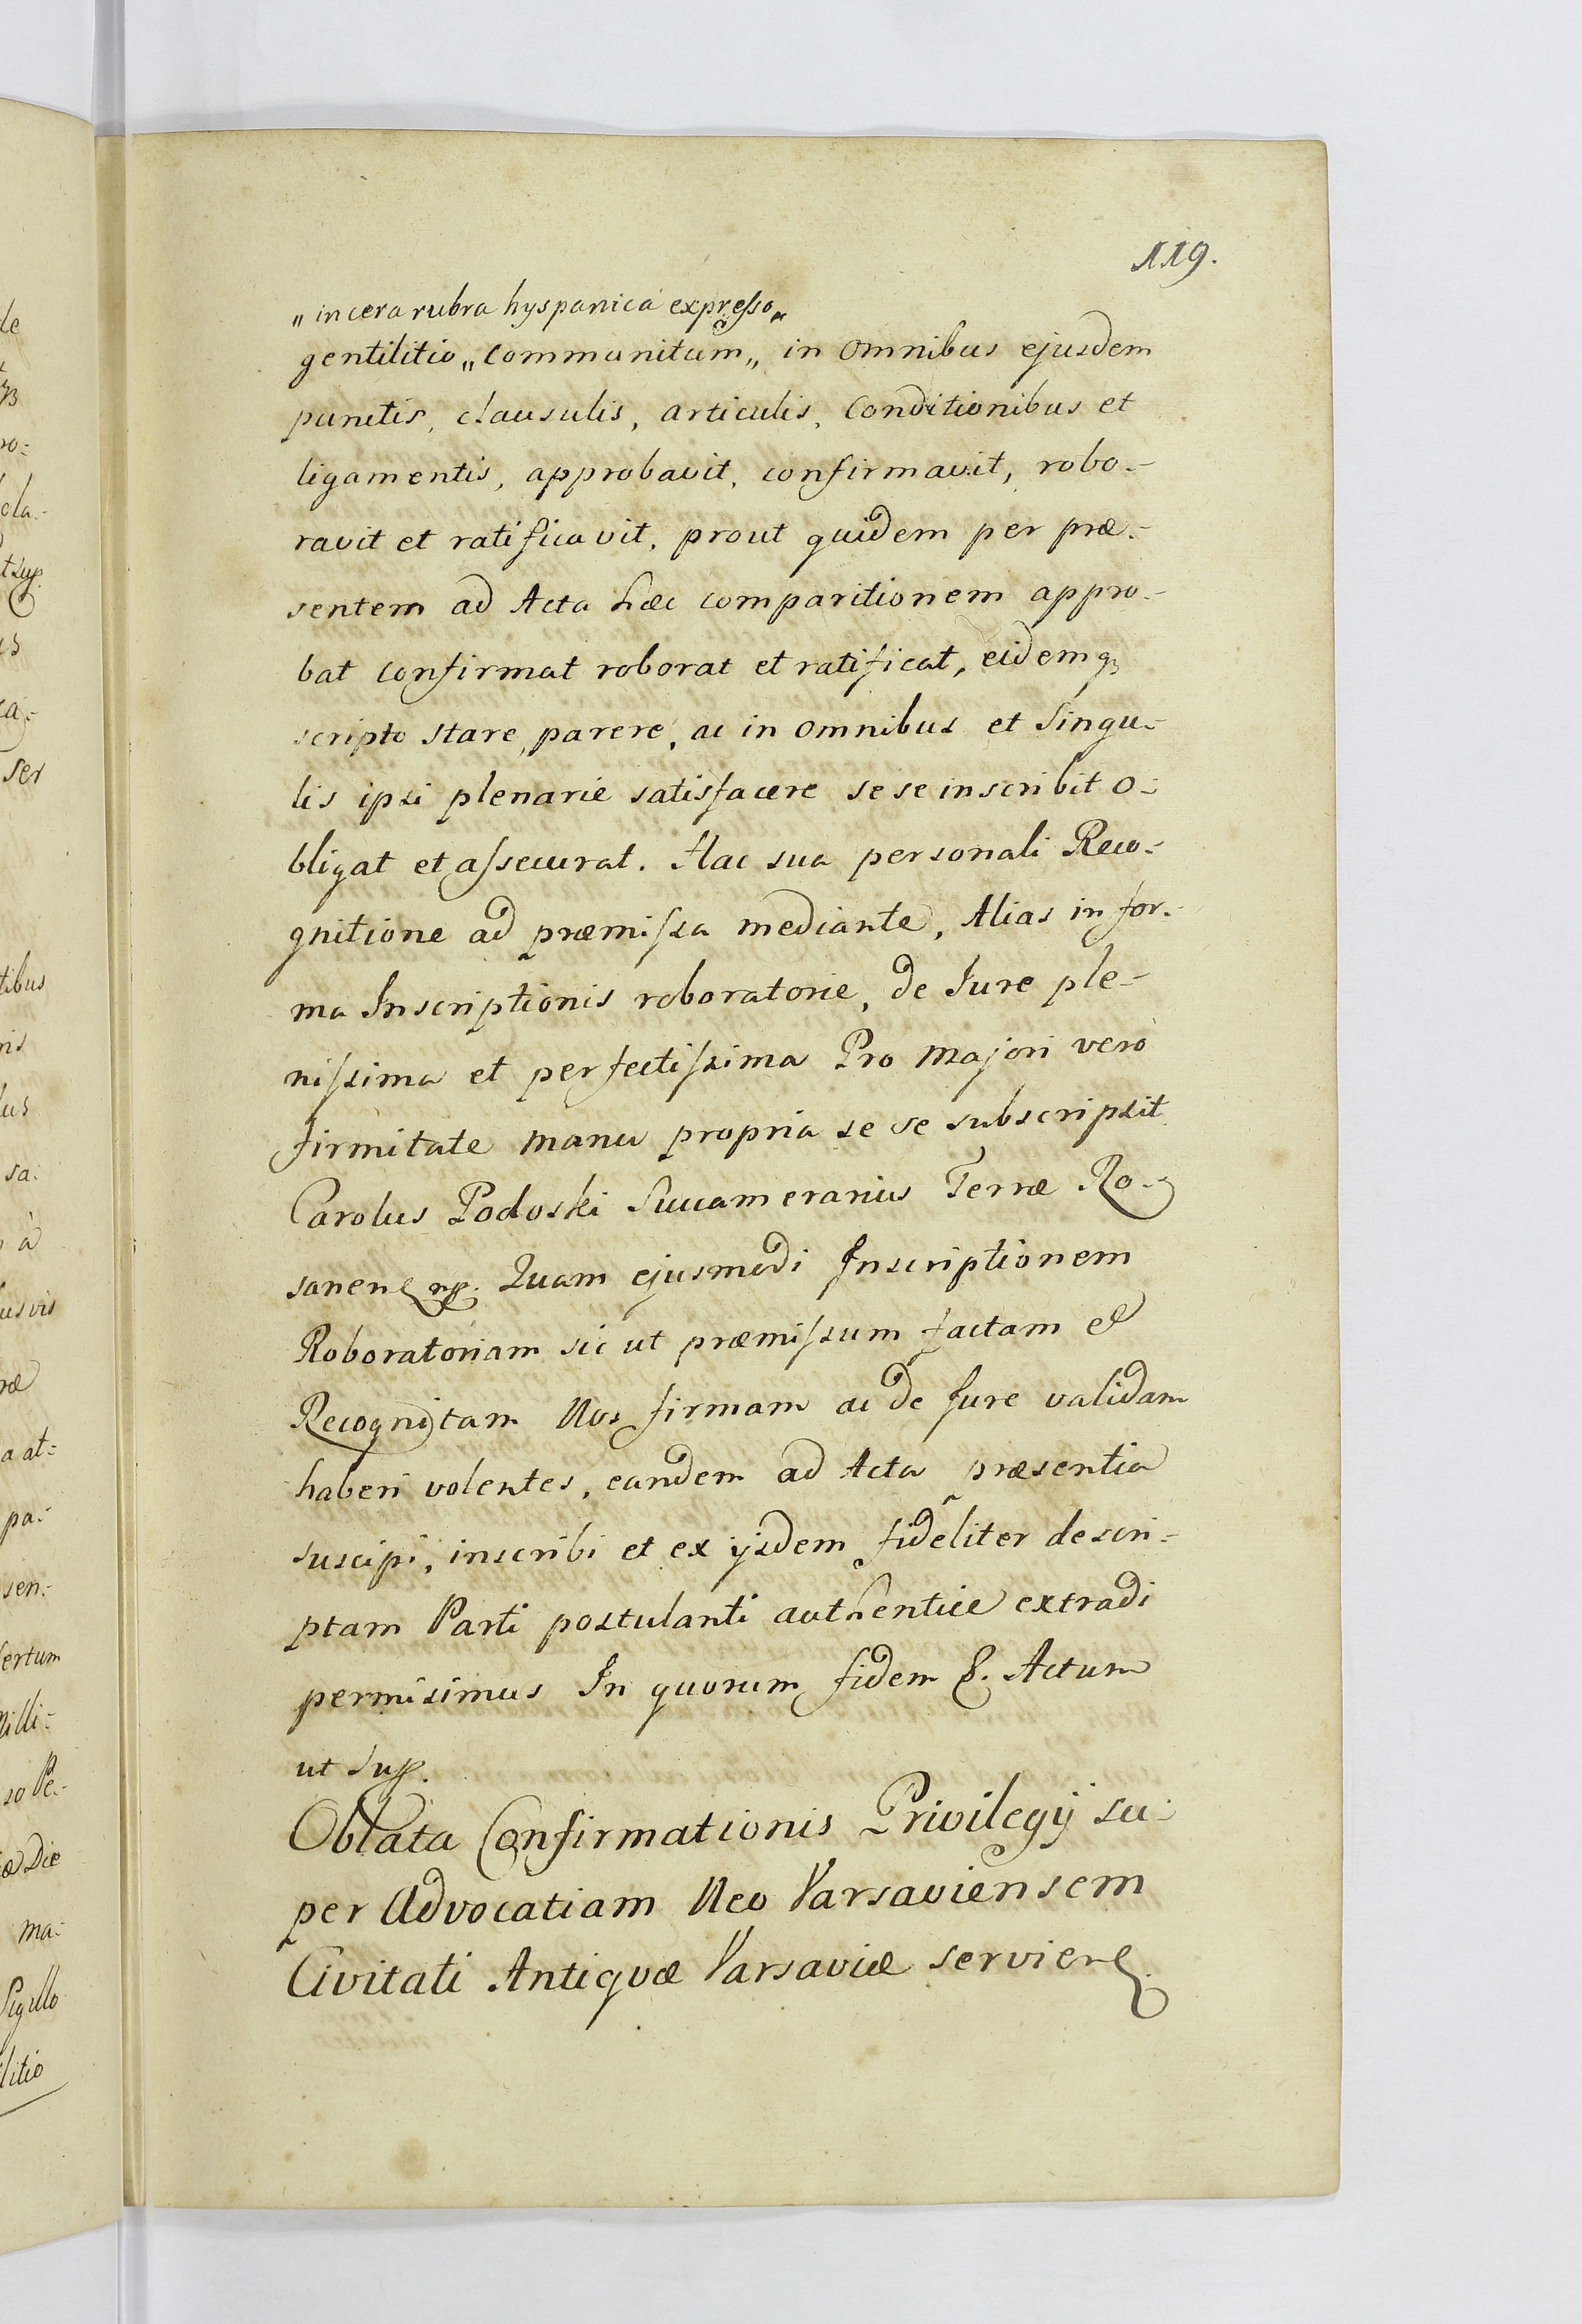 119.
„in cera rubra hyspanica expresso„
gentilitio „communitum„ in omnibus ejusdem
punctis, clausulis, articulis, Conditionibus et
ligamentis, approbavit, confirmavit, robo-
ravit et ratificavit, prout quidem per præ-
sentem ad Acta hæc comparitionem appro-
bat confirmat roborat et ratificat, eidemq3
scripto stare, parere, ac in omnibus et singu-
lis ipsi plenarie satisfacere se se inscribit o-
bligat et assecurat. Hac sua personali Reco-
gnitione ad præmissa mediante, Alias in for-
ma Inscriptionis roboratoriæ, de Jure ple-
nissima et perfectissima Pro majori vero
firmitate manu propria se se subscripsit
Carolus Podoski Succamerarius Terræ Ro-
sanen mp. Quam ejusmodi Inscriptionem
Roboratoriam sic ut præmissum factam et
Recognitam Nos firmam ac de Jure validam
haberi volentes, eandem ad Acta præsentia
suscipi, inscribi et ex ijsdem fideliter descri-
ptam Parti postulanti authentice extradi
permisimus In quorum fidem &. Actum
ut sup.
Oblata Confirmationis Privilegij su-
per Advocatiam Neo Varsaviensem
Civitati Antiquæ Varsaviæ servien
de
ro-
cla-
t sup
ser
tibus
nis
lus
sa-
à
usvis
ræ
a at-
pa-
sen-
sertum
milli-
so Pe-
Die
ma-
Sigillo
litio